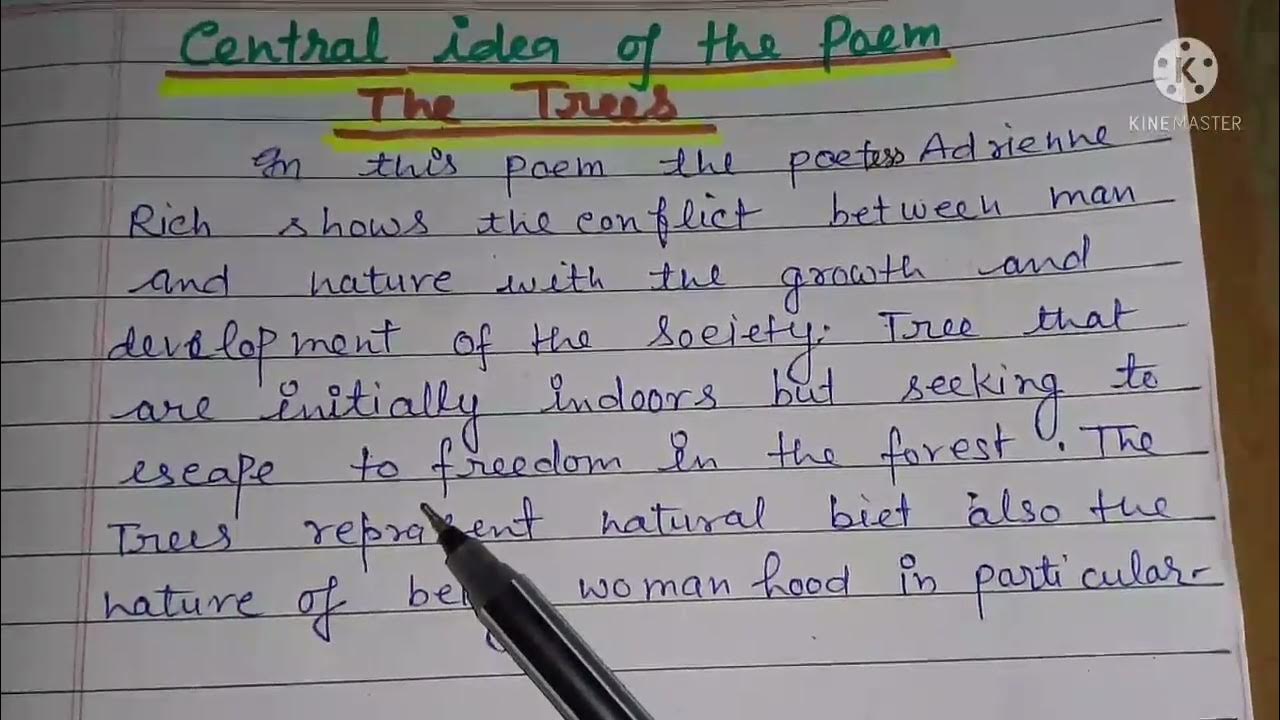 Central idea of the Poem
The Trees
KINEMASTER
In this poem the poetess Adrienne
Rich shows the conflict between man
and nature with the growth and
development of the society. Tree that
are initially indoors but seeking to
escape to freedom in the forest. The
Trees represent natural biet also the
nature of womanhood in particular-